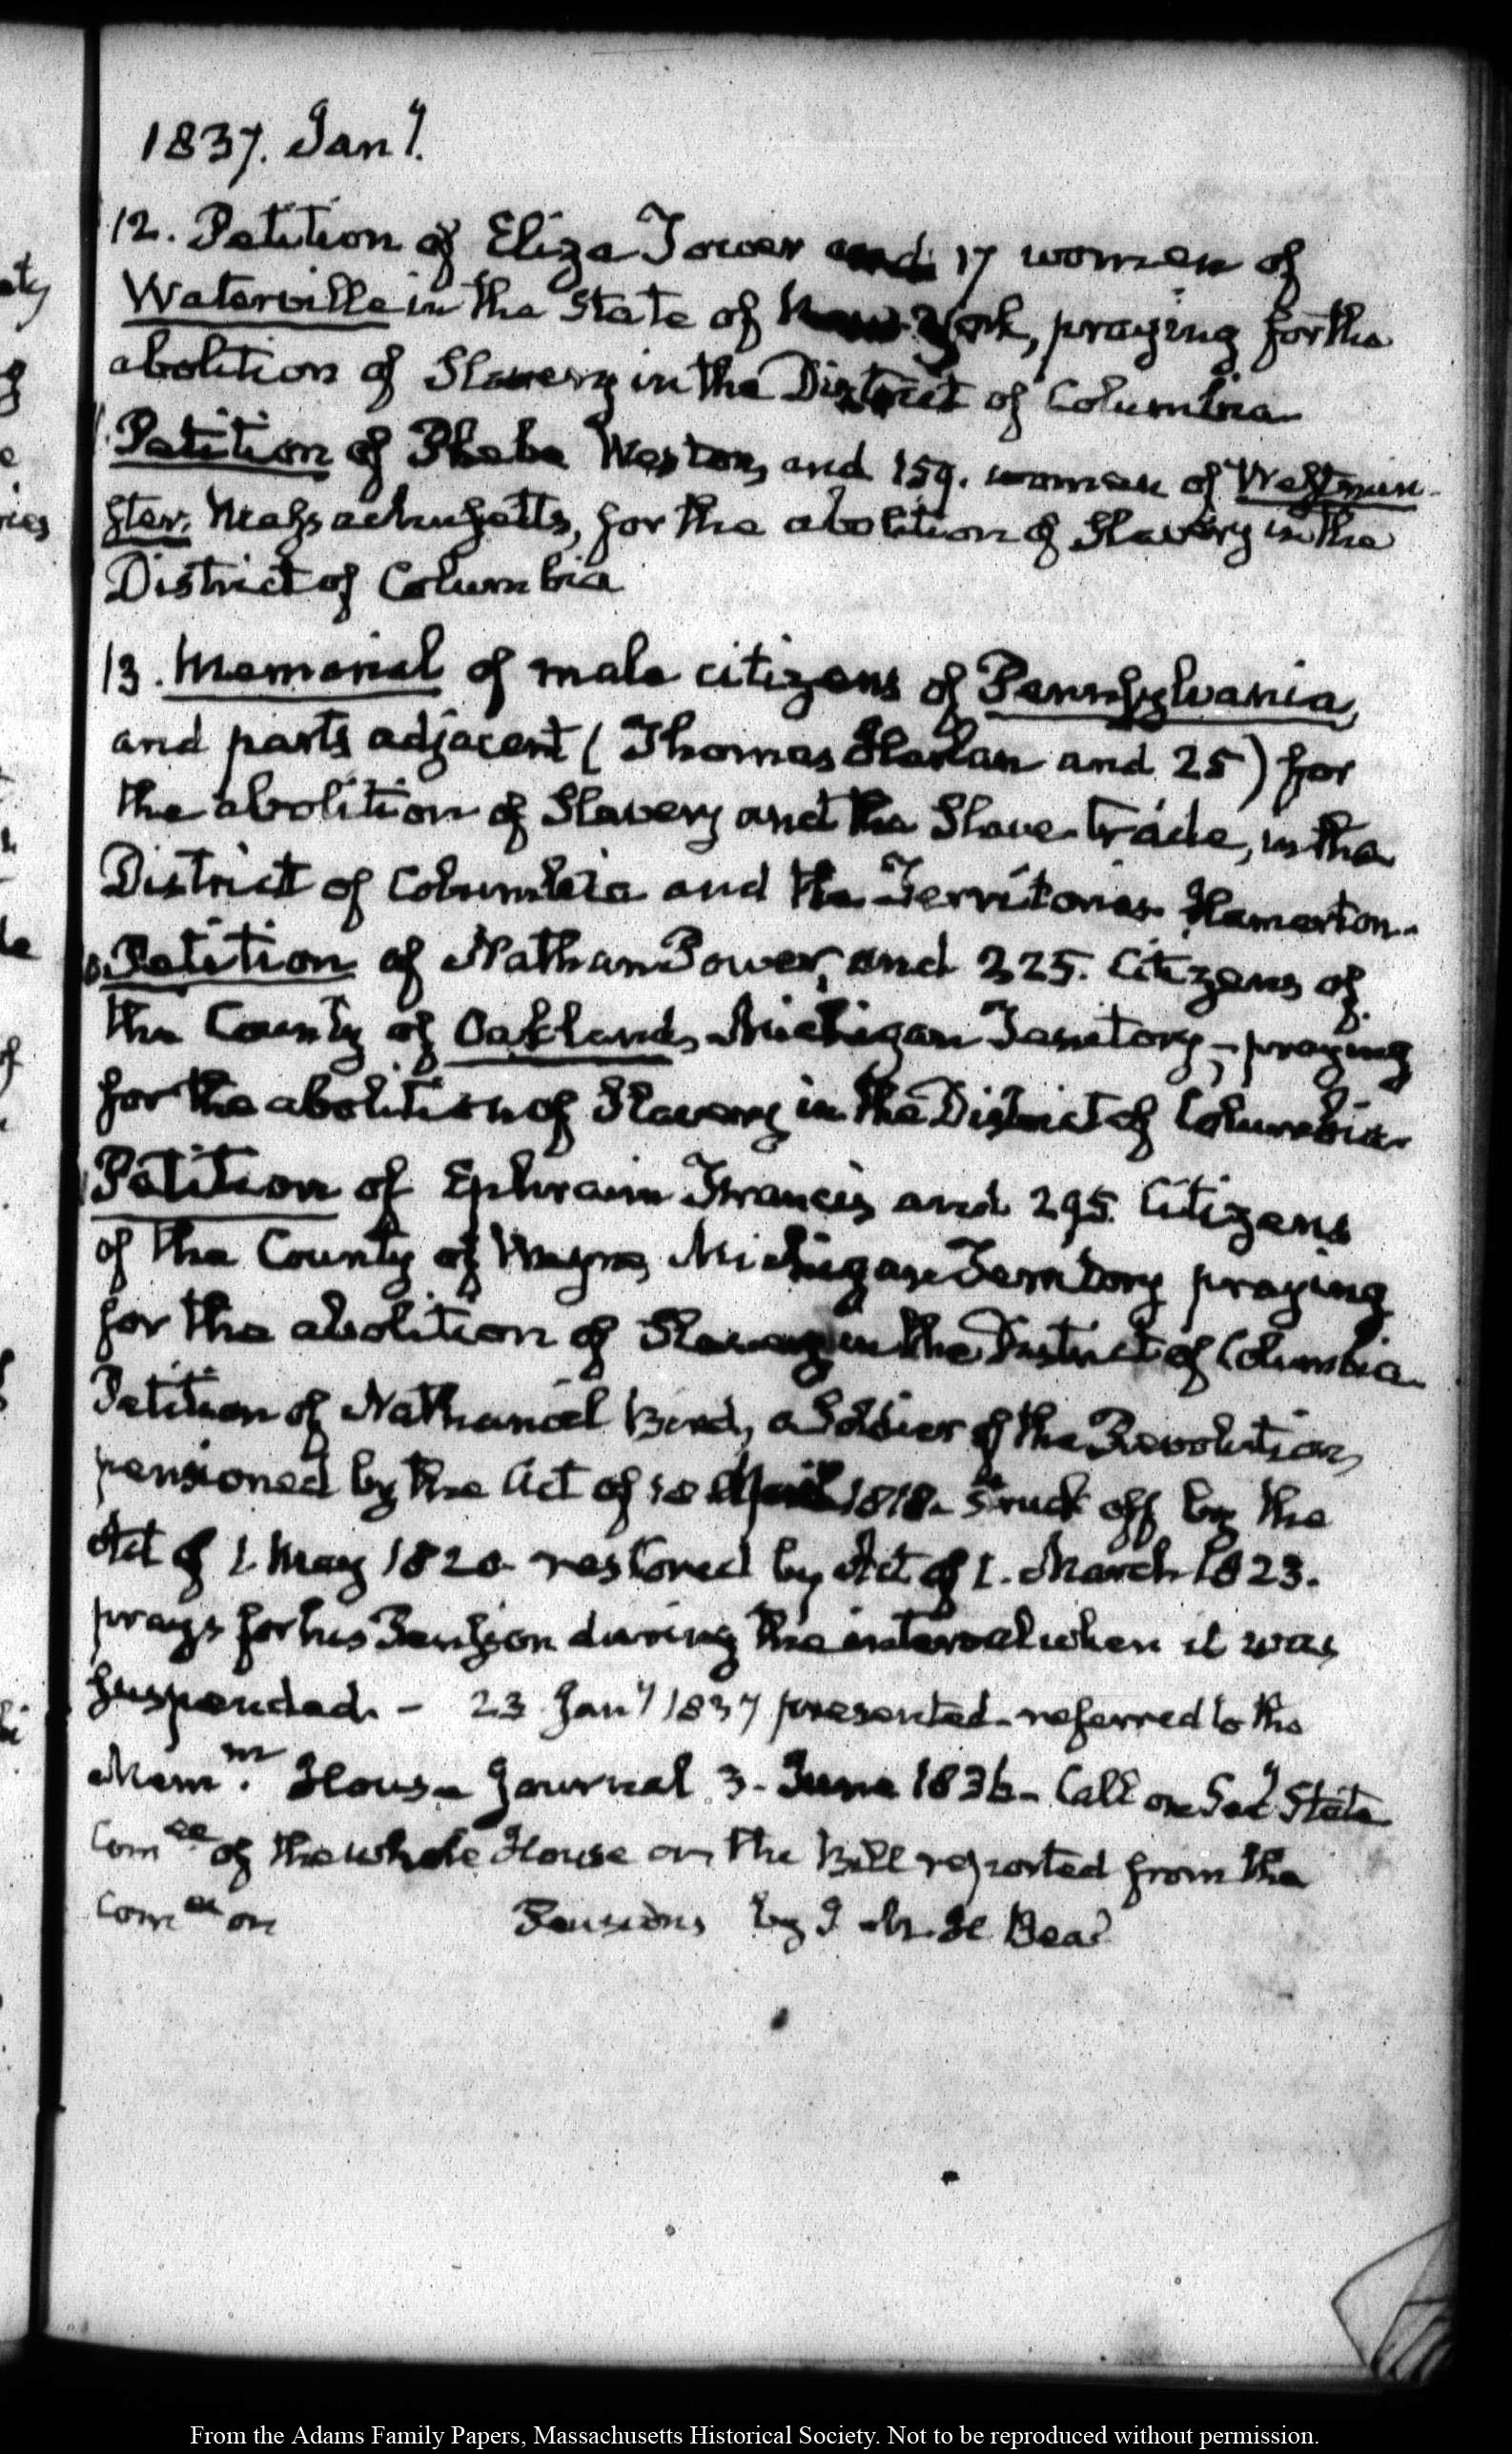 1837. Jan.y
12. Petition of Eliza Tower and 17 women of
Waterville in the State of New-York, praying for the
abolition of Slavery in the District of Columbia
Petition of Phebe Weston, and 159. women of Westmin-
ster, Massachusetts, for the abolition of Slavery in the
District of Columbia
13. Memorial of male citizens of Pennsylvania,
and parts adjacent (Thomas Harlan and 25) for
the abolition of Slavery and the Slave-trade, in the
District of Columbia and the Territories. Hamorton-
Petition of Nathan Power, and 225. Citizens of
the County of Oakland, Michigan Territory, - praying
for the abolition of Slavery in the District of Columbia-
Petition of Ephraim Francis and 295. Citizens
of the County of Wayne, Michigan Territory praying
for the abolition of Slavery in the District of Columbia-
Petition of Nathaniel Bird, a Soldier of the Revolution,
pensioned by the Act of 18 April 1818- Struck off by the
Act of 1. May 1820- restored by Act of 1. March 1823.
prays for his Pension during the interval when it was
suspended. - 23 Jany 1837 presented- referred to the
Mem.m House Journal 3- June 1836- Call on Secy State
Comee of the whole House on the Bill reported from the
Comee on Pensions by
From the Adams Family Papers, Massachusetts Historical Society. Not to be reproduced without permission.